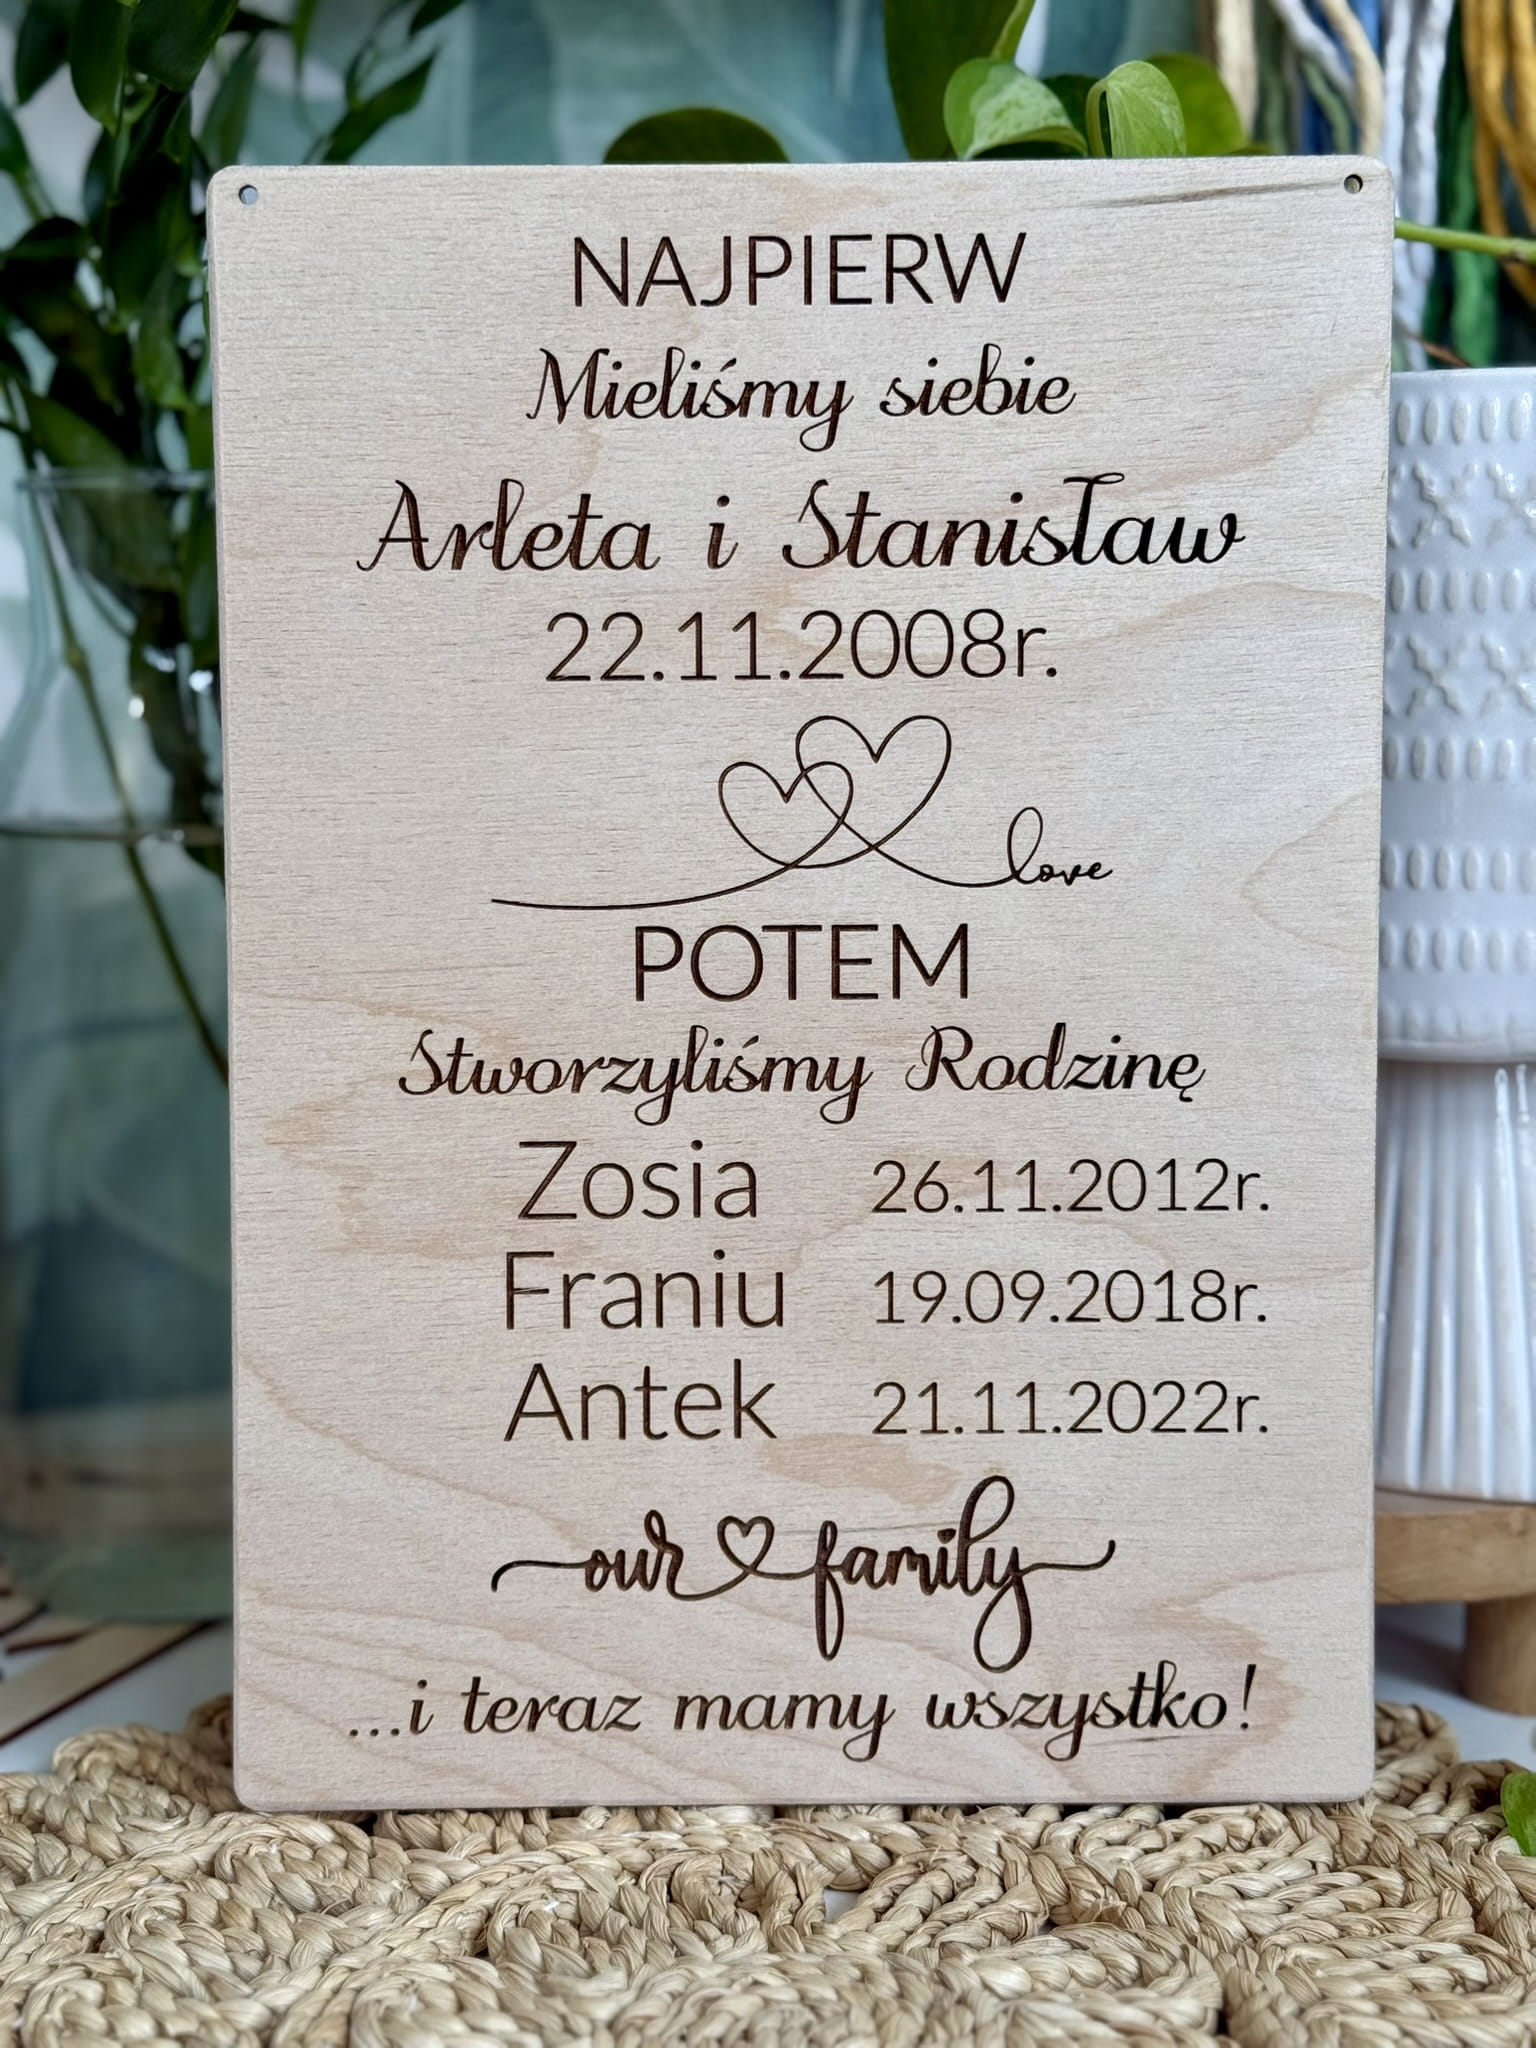 NAJPIERW
Mieliśmy siebie
Arleta i Stanisław
22.11.2008r.
love
POTEM
Stworzyliśmy Rodzinę
Zosia 26.11.2012r.
Franiu 19.09.2018r.
Antek 21.11.2022r.
our family
...i teraz mamy wszystko!